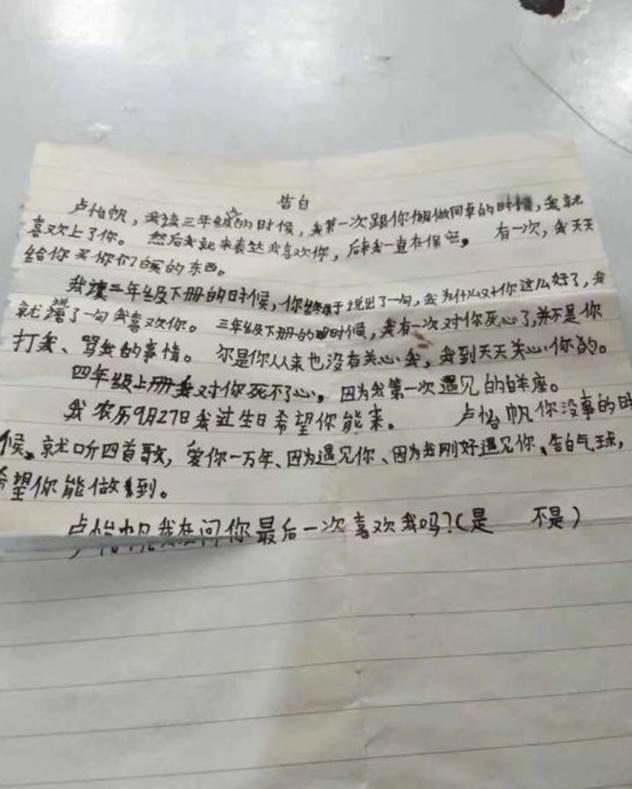 告白
卢怡帆，我读三年级的时候，我第一次跟你做同桌的时候，我就
喜欢上了你。然后我就来表达我喜欢你，后我一直在保。有一次，我天天
给你买你们的东西。
我读三年级下册的时候，你终于说出了一句，我为什么对你这么好了，我
就了一句我喜欢你。三年级下册的时候，我有一次对你死心了，并不是你
打我、骂我的事情。尔是你从来也没有关心我，我到天天关心你的。
四年级上册我对你死不了心，因为我第一次遇见的座。
我农历9月27日我过生日希望你能来。卢怡帆你没事的时
候，就听四首歌，爱你一万年、因为遇见你、因为我刚好遇见你、告白气球，
希望你能做到。
卢怡帆我在问你最后一次喜欢我吗？（是 不是）